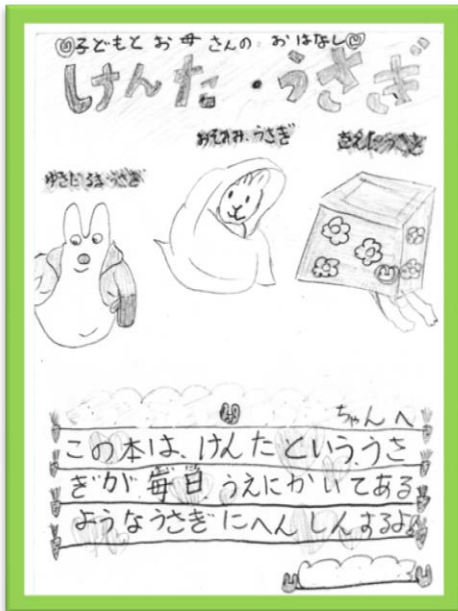 子どもとお母さんのおはなし
けんた・うさぎ
おやすみ、うさぎ
きえたうさぎ
ゆきだるまうさぎ
ちゃんへ
この本は、けんたという、うさ
ぎが、毎日、うえにかいてある
ようなうさぎにへんしんするよ